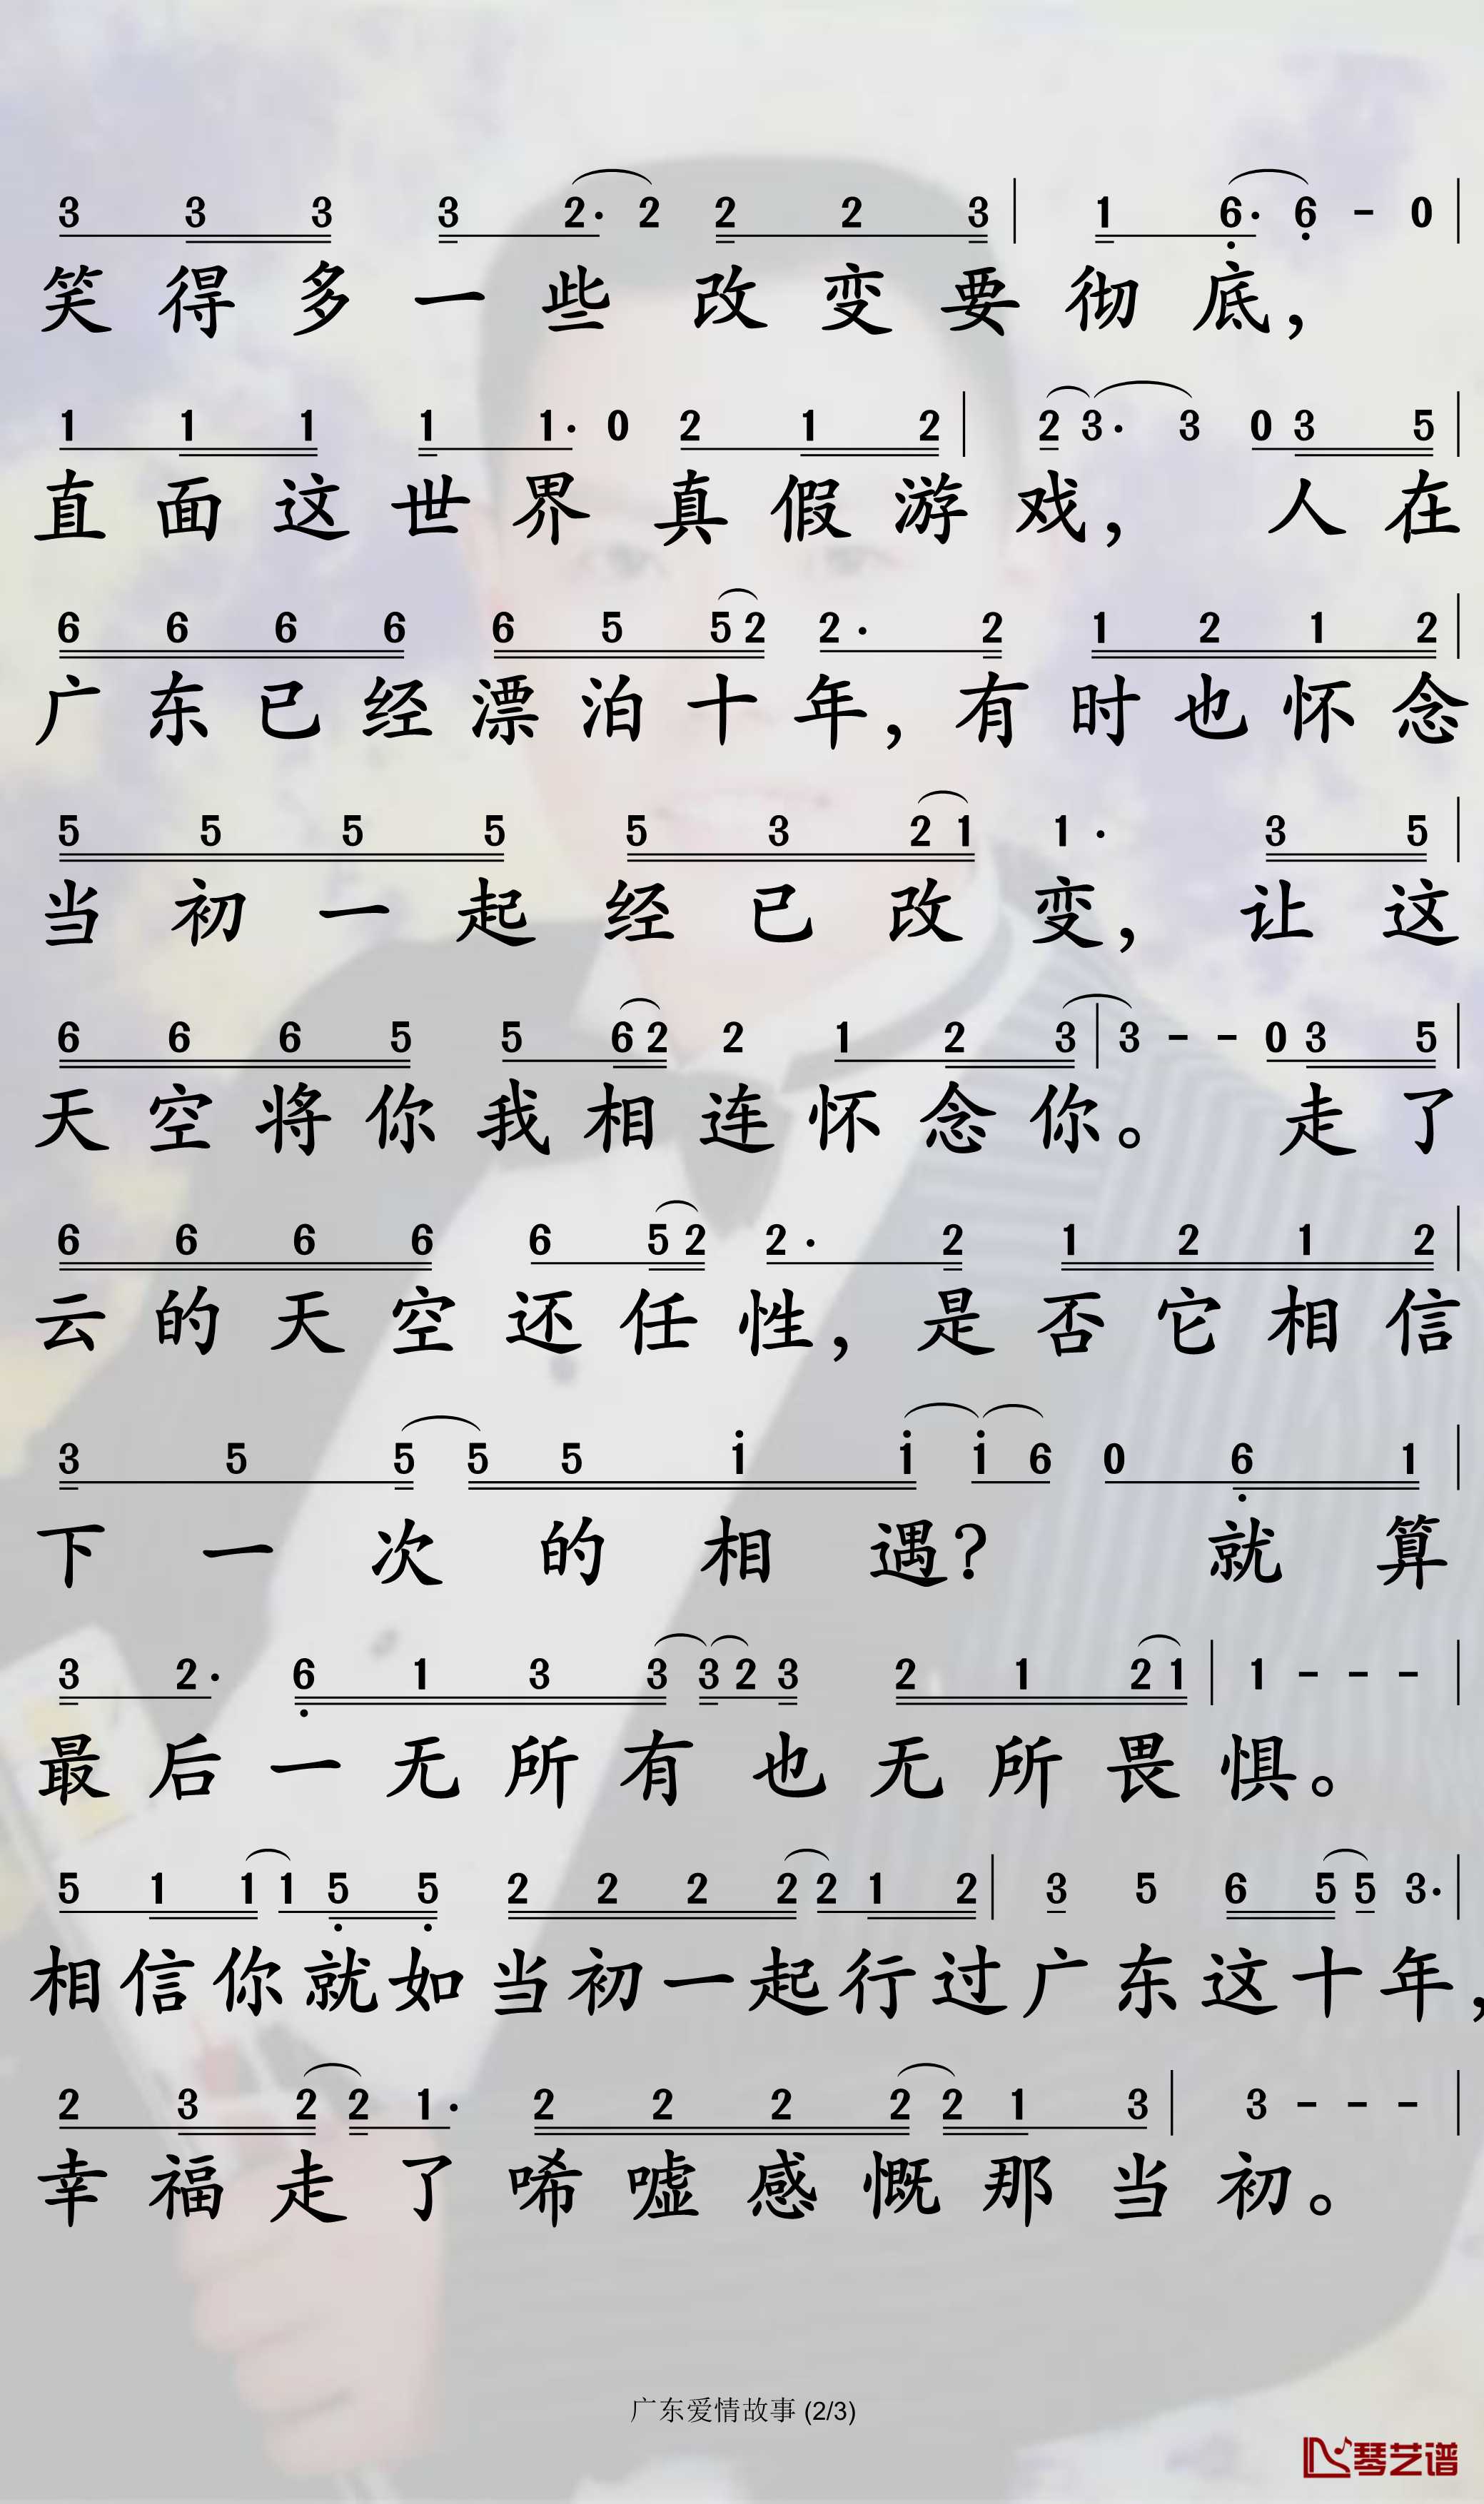 3 3 3 3 2· 2 2 2 3 | 1 6· 6 - 0 |
笑得多一些改变要彻底，
1 1 1 1 1· 0 2 1 2 | 2 3· 3 0 3 5 |
直面这世界真假游戏，人在
6 6 6 6 6 5 5 2 2· 2 1 2 1 2 |
广东已经漂泊十年，有时也怀念
5 5 5 5 5 3 2 1 1· 3 5 |
当初一起经已改变，让这
6 6 6 5 5 6 2 2 1 2 3 | 3 - - 0 3 5 |
天空将你我相连怀念你。走了
6 6 6 6 6 5 2 2· 2 1 2 1 2 |
云的天空还任性，是否它相信
3 5 5 5 5 i i i 6 0 6 1 |
下一次的相遇？就算
3 2· 6 1 3 3 3 2 3 2 1 2 1 | 1 - - - |
最后一无所有也无所畏惧。
5 1 1 1 5 5 2 2 2 2 2 1 2 | 3 5 6 5 5 3· |
相信你就如当初一起行过广东这十年，
2 3 2 2 1· 2 2 2 2 2 1 3 | 3 - - - |
幸福走了唏嘘感慨那当初。
广东爱情故事 (2/3)
琴艺谱